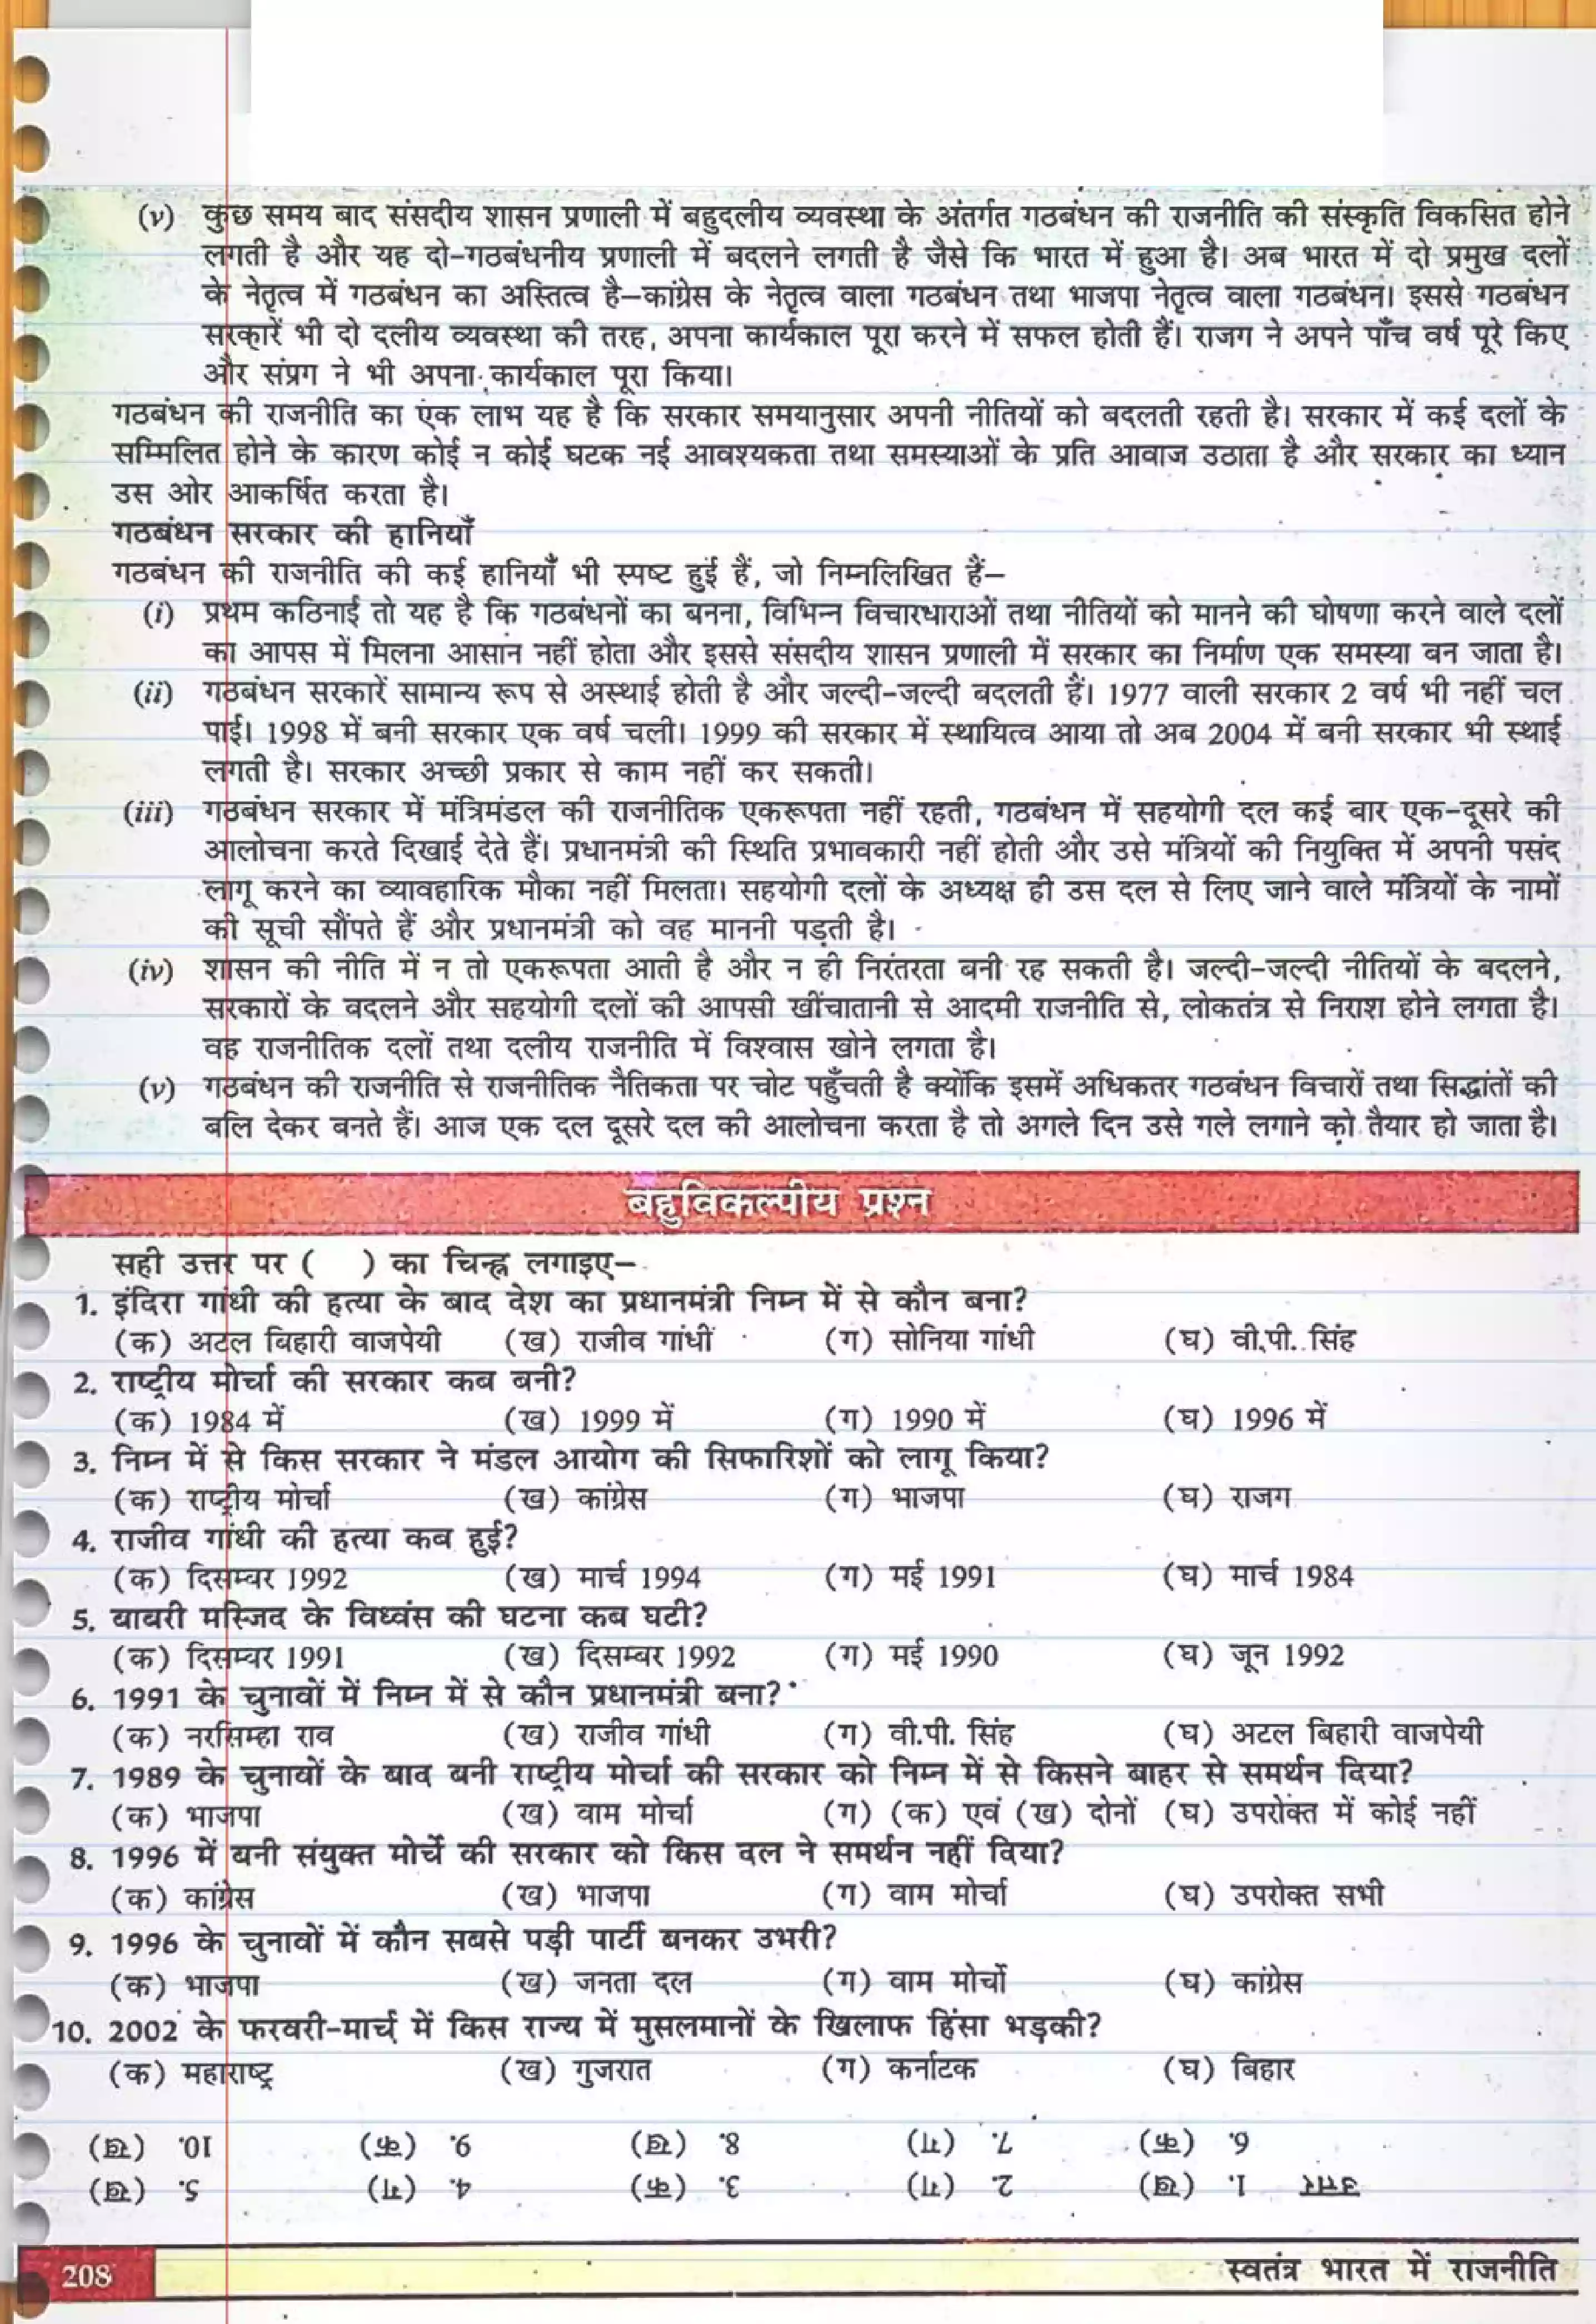 (v) कुछ समय बाद संसदीय शासन प्रणाली में बहुदलीय व्यवस्था के अंतर्गत गठबंधन की राजनीति की संस्कृति विकसित होने
लगती है और यह दो-गठबंधनीय प्रणाली में बदलने लगती है जैसे कि भारत में हुआ है। अब भारत में दो प्रमुख दलों
के नेतृत्व में गठबंधन का अस्तित्व है–कांग्रेस के नेतृत्व वाला गठबंधन तथा भाजपा नेतृत्व वाला गठबंधन। इससे गठबंधन
सरकारें भी दो दलीय व्यवस्था की तरह, अपना कार्यकाल पूरा करने में सफल होती हैं। राजग ने अपने पाँच वर्ष पूरे किए
और संप्रग ने भी अपना कार्यकाल पूरा किया।
गठबंधन की राजनीति का एक लाभ यह है कि सरकार समयानुसार अपनी नीतियों को बदलती रहती है। सरकार में कई दलों के
सम्मिलित होने के कारण कोई न कोई घटक नई आवश्यकता तथा समस्याओं के प्रति आवाज उठाता है और सरकार का ध्यान
उस ओर आकर्षित करता है।
गठबंधन सरकार की हानियाँ
गठबंधन की राजनीति की कई हानियाँ भी स्पष्ट हुई हैं, जो निम्नलिखित हैं–
(i) प्रथम कठिनाई तो यह है कि गठबंधनों का बनना, विभिन्न विचारधाराओं तथा नीतियों को मानने की घोषणा करने वाले दलों
का आपस में मिलना आसान नहीं होता और इससे संसदीय शासन प्रणाली में सरकार का निर्माण एक समस्या बन जाता है।
(ii) गठबंधन सरकारें सामान्य रूप से अस्थाई होती है और जल्दी-जल्दी बदलती हैं। 1977 वाली सरकार 2 वर्ष भी नहीं चल
पाई। 1998 में बनी सरकार एक वर्ष चली। 1999 की सरकार में स्थायित्व आया तो अब 2004 में बनी सरकार भी स्थाई
लगती है। सरकार अच्छी प्रकार से काम नहीं कर सकती।
(iii) गठबंधन सरकार में मंत्रिमंडल की राजनीतिक एकरूपता नहीं रहती, गठबंधन में सहयोगी दल कई बार एक-दूसरे की
आलोचना करते दिखाई देते हैं। प्रधानमंत्री की स्थिति प्रभावकारी नहीं होती और उसे मंत्रियों की नियुक्ति में अपनी पसंद
लागू करने का व्यावहारिक मौका नहीं मिलता। सहयोगी दलों के अध्यक्ष ही उस दल से लिए जाने वाले मंत्रियों के नामों
की सूची सौंपते हैं और प्रधानमंत्री को वह माननी पड़ती है।
(iv) शासन की नीति में न तो एकरूपता आती है और न ही निरंतरता बनी रह सकती है। जल्दी-जल्दी नीतियों के बदलने,
सरकारों के बदलने और सहयोगी दलों की आपसी खींचातानी से आदमी राजनीति से, लोकतंत्र से निराश होने लगता है।
वह राजनीतिक दलों तथा दलीय राजनीति में विश्वास खोने लगता है।
(v) गठबंधन की राजनीति से राजनीतिक नैतिकता पर चोट पहुँचती है क्योंकि इसमें अधिकतर गठबंधन विचारों तथा सिद्धांतों की
बलि देकर बनते हैं। आज एक दल दूसरे दल की आलोचना करता है तो अगले दिन उसे गले लगाने को तैयार हो जाता है।
बहुविकल्पीय प्रश्न
सही उत्तर पर ( ) का चिन्ह्न लगाइए–
1. इंदिरा गांधी की हत्या के बाद देश का प्रधानमंत्री निम्न में से कौन बना?
(क) अटल बिहारी वाजपेयी (ख) राजीव गांधी (ग) सोनिया गांधी (घ) वी.पी. सिंह
2. राष्ट्रीय मोर्चा की सरकार कब बनी?
(क) 1984 में (ख) 1999 में (ग) 1990 में (घ) 1996 में
3. निम्न में से किस सरकार ने मंडल आयोग की सिफारिशों को लागू किया?
(क) राष्ट्रीय मोर्चा (ख) कांग्रेस (ग) भाजपा (घ) राजग
4. राजीव गांधी की हत्या कब हुई?
(क) दिसम्बर 1992 (ख) मार्च 1994 (ग) मई 1991 (घ) मार्च 1984
5. बाबरी मस्जिद के विध्वंस की घटना कब घटी?
(क) दिसम्बर 1991 (ख) दिसम्बर 1992 (ग) मई 1990 (घ) जून 1992
6. 1991 के चुनावों में निम्न में से कौन प्रधानमंत्री बना?
(क) नरसिम्हा राव (ख) राजीव गांधी (ग) वी.पी. सिंह (घ) अटल बिहारी वाजपेयी
7. 1989 के चुनावों के बाद बनी राष्ट्रीय मोर्चा की सरकार को निम्न में से किसने बाहर से समर्थन दिया?
(क) भाजपा (ख) वाम मोर्चा (ग) (क) एवं (ख) दोनों (घ) उपरोक्त में कोई नहीं
8. 1996 में बनी संयुक्त मोर्चे की सरकार को किस दल ने समर्थन नहीं दिया?
(क) कांग्रेस (ख) भाजपा (ग) वाम मोर्चा (घ) उपरोक्त सभी
9. 1996 के चुनावों में कौन सबसे पड़ी पार्टी बनकर उभरी?
(क) भाजपा (ख) जनता दल (ग) वाम मोर्चो (घ) कांग्रेस
10. 2002 के फरवरी-मार्च में किस राज्य में मुसलमानों के खिलाफ हिंसा भड़की?
(क) महाराष्ट्र (ख) गुजरात (ग) कर्नाटक (घ) बिहार
उत्तर 1. (ख) 2. (ग) 3. (क) 4. (ग) 5. (ख)
6. (क) 7. (ग) 8. (ख) 9. (क) 10. (ख)
208 स्वतंत्र भारत में राजनीति